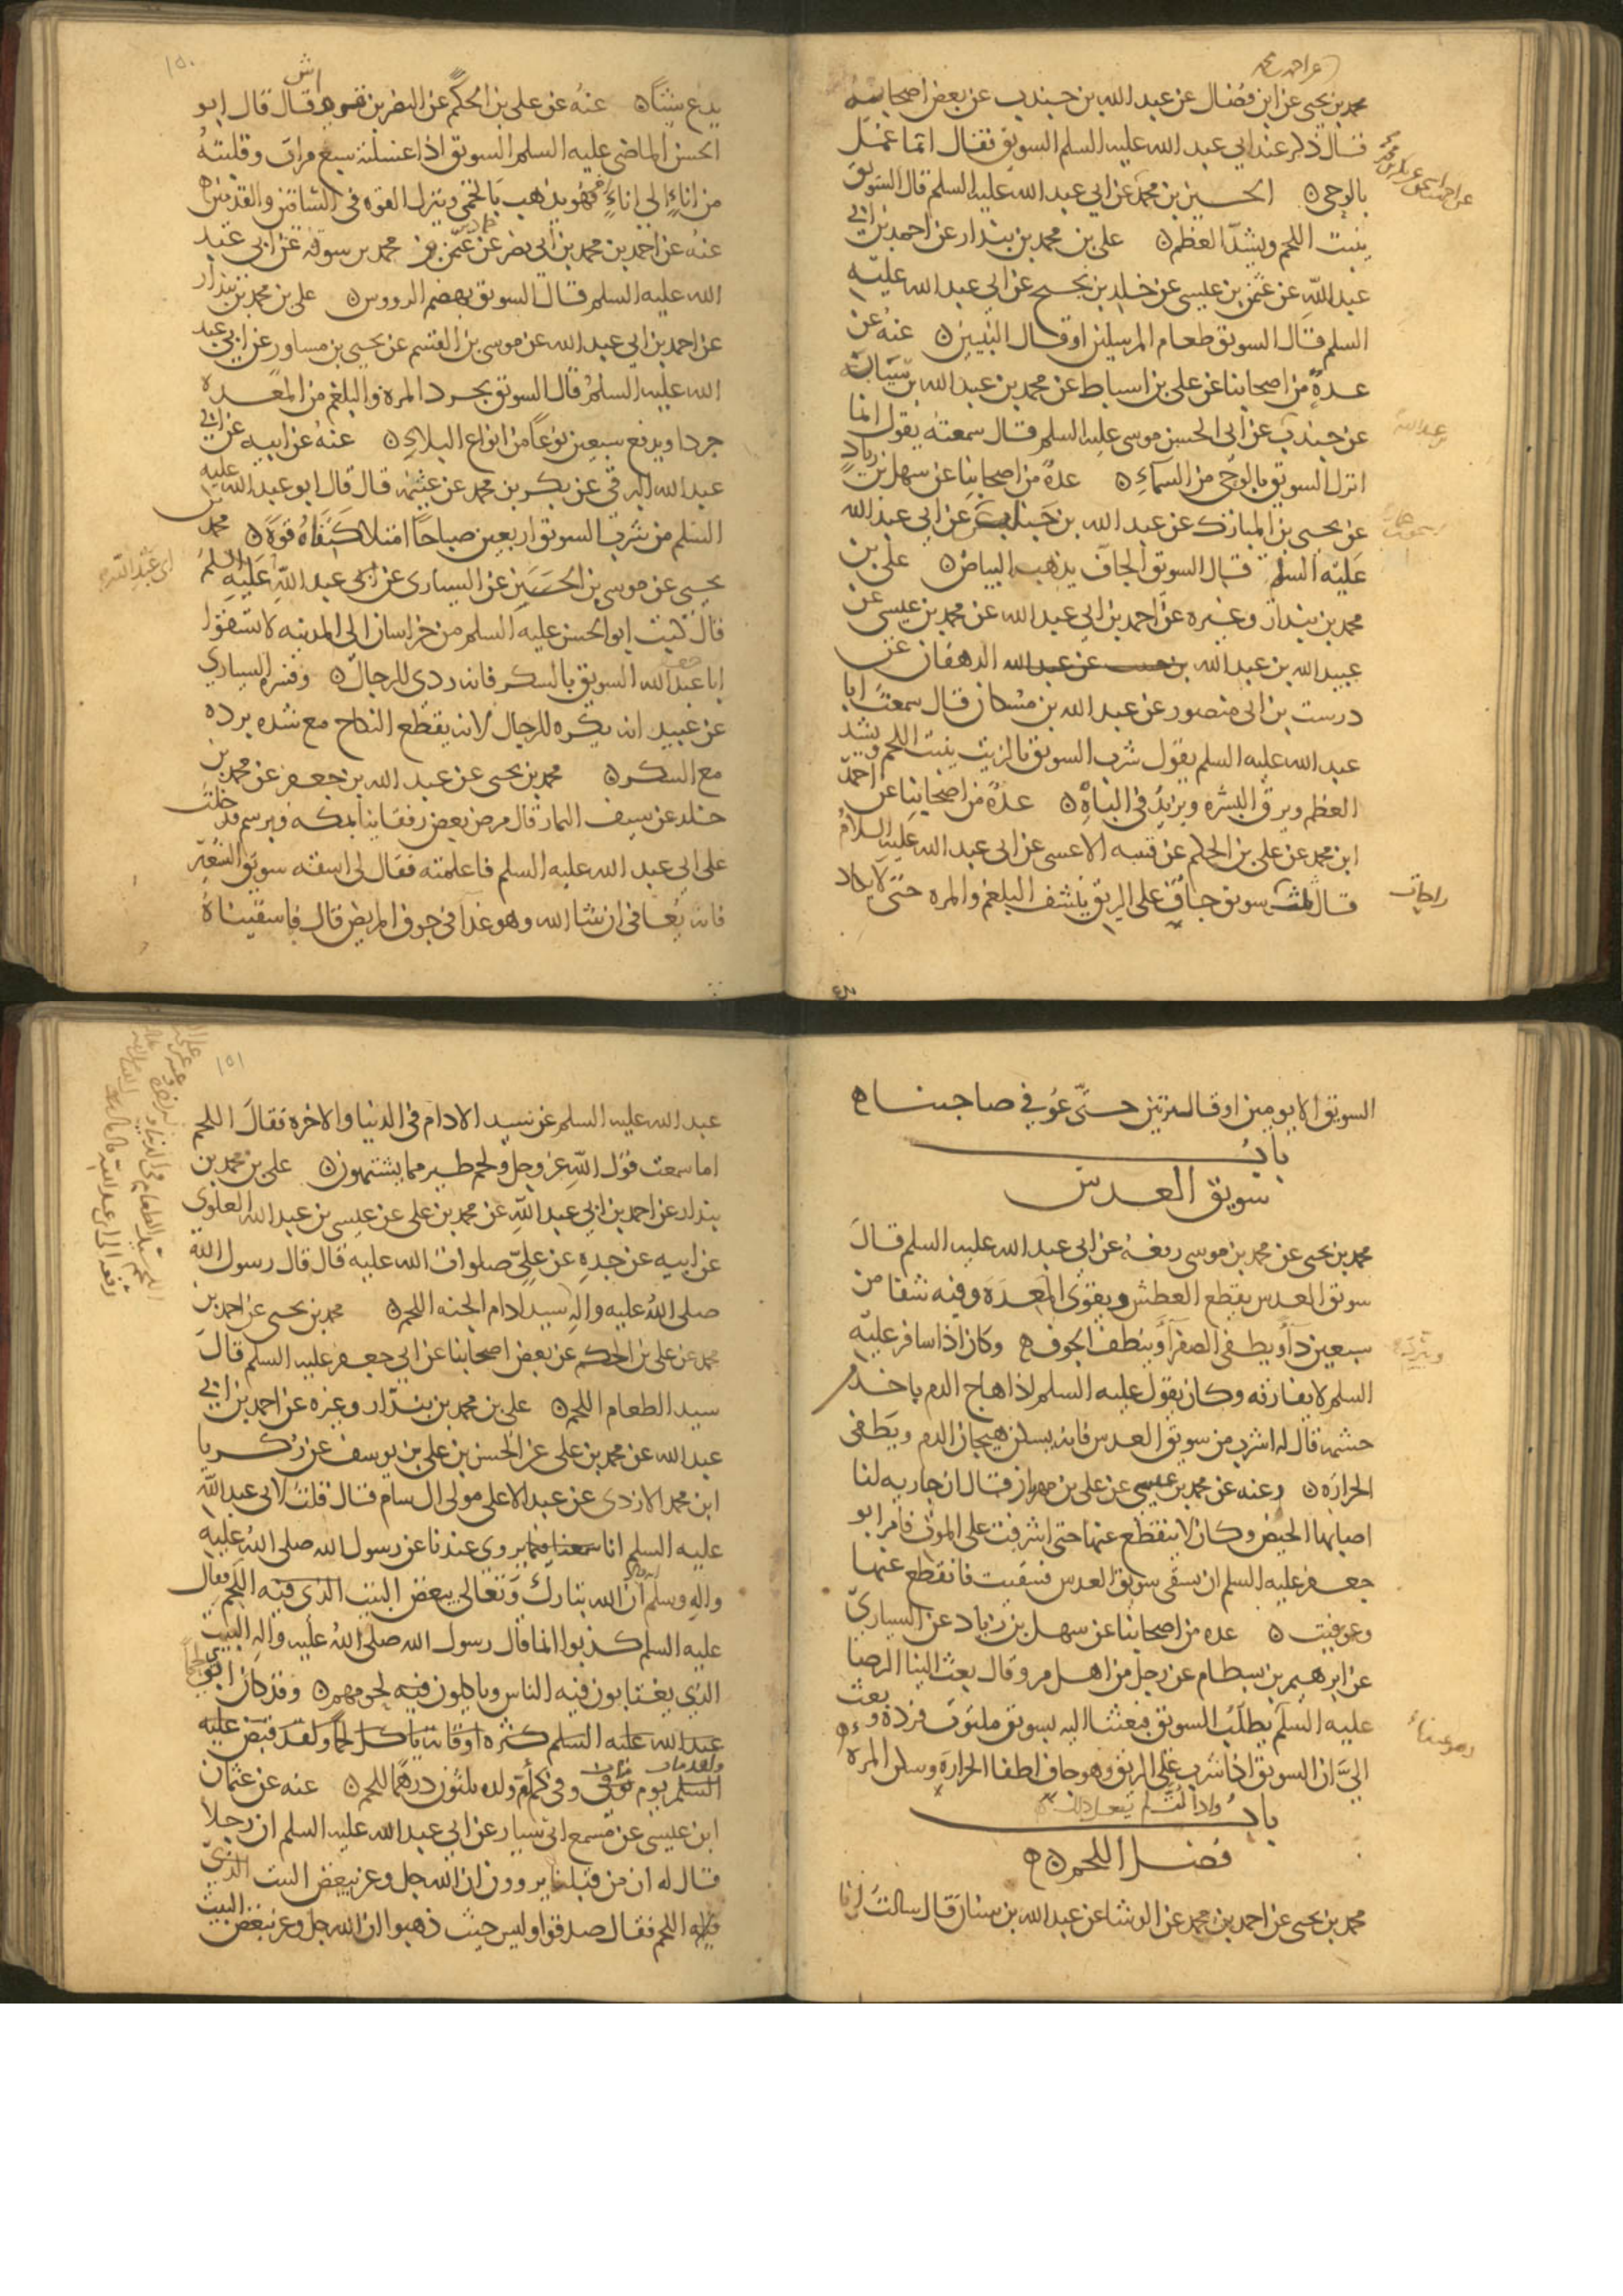 محمد بن يحيى عن ابن فضال عن عبد الله بن جندب عن بعض اصحابه
قال ذكر عند ابي عبد الله عليه السلم السويق فقال انما عمل
بالوحي الحسين بن محمد عن ابي عبد الله عليه السلم قال السويق
ينبت اللحم ويشد العظم علي بن محمد بن بندار عن احمد بن ابي
عبد الله عن عثمن بن عيسى عن خلد بن نجيح عن ابي عبد الله عليه
السلم قال السويق طعام المرسلين او قال النبيين عنه عن
عدة من اصحابنا عن علي بن اسباط عن محمد بن عبد الله بن سيابة
عن جندب عن ابي الحسن موسى عليه السلم قال سمعته يقول انما
انزل السويق بالوحي من السماء عدة من اصحابنا عن سهل بن زياد
عن يحيى بن المبارك عن عبد الله بن جندب عن ابي عبد الله
عليه السلم قال السويق الجاف يذهب البياض علي بن
محمد بن بندار وغيره عن احمد بن ابي عبد الله عن محمد بن عيسى عن
عبيد الله بن عبد الله الدهقان عن
درست بن ابي منصور عن عبد الله بن مسكان قال سمعت ابا
عبد الله عليه السلم يقول شرب السويق بالزيت ينبت اللحم ويشد
العظم ويرق البشره ويزيد في الباه عدة من اصحابنا عن احمد
ابن محمد عن علي بن الحكم عن قتيبه الاعشى عن ابي عبد الله عليه السلام
قال ثلث سويق جاف على الريق ينشف البلغم والمره حتى لا يكاد
راحات
١٥٠
يدع شيئا عنه عن علي بن الحكم عن النضر بن قرواش قال قال ابو
الحسن الماضي عليه السلم السويق اذا غسلته سبع مرات وقلبته
من اناء الى اناء اخر فهو يذهب بالحمى وينزل القوه في الساقين والقدمين
عنه عن احمد بن محمد بن ابي نصر عن حماد بن عثمن عن محمد بن سوقه عن ابي عبد
الله عليه السلم قال السويق يهضم الرووس علي بن محمد بن بندار
عن احمد بن ابي عبد الله عن موسى بن القسم عن يحيى بن مساور عن ابي عبد
الله عليه السلم قال السويق يجرد المره والبلغم من المعده
جردا ويدفع سبعين نوعا من انواع البلاء عنه عن ابيه عن ابي
عبد الله البرقي عن بكر بن محمد عن عثيمه قال قال ابو عبد الله عليه
السلم من شرب السويق اربعين صباحا امتلا كتفاه قوة محمد بن
يحيى عن موسى بن الحسين عن السياري عن ابي عبد الله عليه السلم
قال كتب ابو الحسن عليه السلم من خراسان الى المدينه لا تسقوا
ابا عبد الله السويق بالسكر فانه ردى للرجال وفسره السياري
عن عبيد انه يكره للرجال لانه يقطع النكاح مع شده برده
مع السكر محمد بن يحيى عن عبد الله بن جعفر عن محمد بن
خلد عن سيف التمار قال مرض بعض رفقاينا بمكه وبرسم فدخلت
على ابي عبد الله عليه السلم فاعلمته فقال لي اسقه سويق الشعير
فانه يعافى ان شا الله وهو غدا في جوف المريض قال فاسقيناه
السويق الا يومين او قال مرتين حتى عوفي صاحبنا
باب
سويق العدس
محمد بن يحيى عن محمد بن موسى رفعه عن ابي عبد الله عليه السلم قال
سويق العدس يقطع العطش ويقوي المعده وفيه شفا من
سبعين دآء ويطفي الصفرآء وينظف الجوف وكان اذا سافر عليه
السلم لا يفارقه وكان يقول عليه السلم اذا هاج الدم باحد من
حشمه قال له اشرب من سويق العدس فانه يسكن هيجان الدم ويطفي
الحراره وعنه عن محمد بن عيسى عن علي بن مهزيار قال ان جاريه لنا
اصابها الحيض وكان لا ينقطع عنها حتى اشرفت على الموت فامر ابو
جعفر عليه السلم ان تسقى سويق العدس فسقيت فانقطع عنها
وعوفيت عده من اصحابنا عن سهل بن زياد عن السياري
عن ابرهيم بن بسطام عن رجل من اهل مرو قال بعث الينا الرضا
عليه السلم يطلب السويق فبعثنا اليه بسويق ملتوت فرده وبعث
الي ان السويق اذا شرب على الريق وهو جاف اطفا الحرارة وسكن المره
واذا لت لم يفعل ذلك
باب
فضل اللحم
محمد بن يحيى عن احمد بن محمد عن الوشا عن عبد الله بن سنان قال سالت ابا
١٥١
عبد الله عليه السلم عن سيد الادام في الدنيا والاخره فقال اللحم
اما سمعت قول الله عز وجل ولحم طير مما يشتهون علي بن محمد بن
بندار عن احمد بن ابي عبد الله عن محمد بن علي عن عيسى بن عبد الله العلوي
عن ابيه عن جده عن علي صلوات الله عليه قال قال رسول الله
صلى الله عليه واله سيد ادام الجنه اللحم محمد بن يحيى عن احمد بن
محمد عن علي بن الحكم عن بعض اصحابنا عن ابي جعفر عليه السلم قال
سيد الطعام اللحم علي بن محمد بن بندار وغيره عن احمد بن ابي
عبد الله عن محمد بن علي عن الحسن بن علي بن يوسف عن زكريا
ابن محمد الازدي عن عبد الاعلى مولى ال سام قال قلت لابي عبد الله
عليه السلم انا يروى عندنا عن رسول الله صلى الله عليه
واله وسلم ان الله تبارك وتعالى يبغض البيت الذي فيه اللحم فقال
عليه السلم كذبوا انما قال رسول الله صلى الله عليه واله البيت
الذي يغتابون فيه الناس وياكلون فيه لحومهم وقد كان ابي
السلم يوم توفي وفي كم ام ولده ثلثون درهما للحم عنه عن عثمان
ابن عيسى عن مسمع ابي سيار عن ابي عبد الله عليه السلم ان رجلا
قال له ان من قبلنا يروون ان الله جل وعز يبغض البيت الذي
فيه اللحم فقال صدقوا وليس حيث ذهبوا ان الله جل وعز يبغض البيت